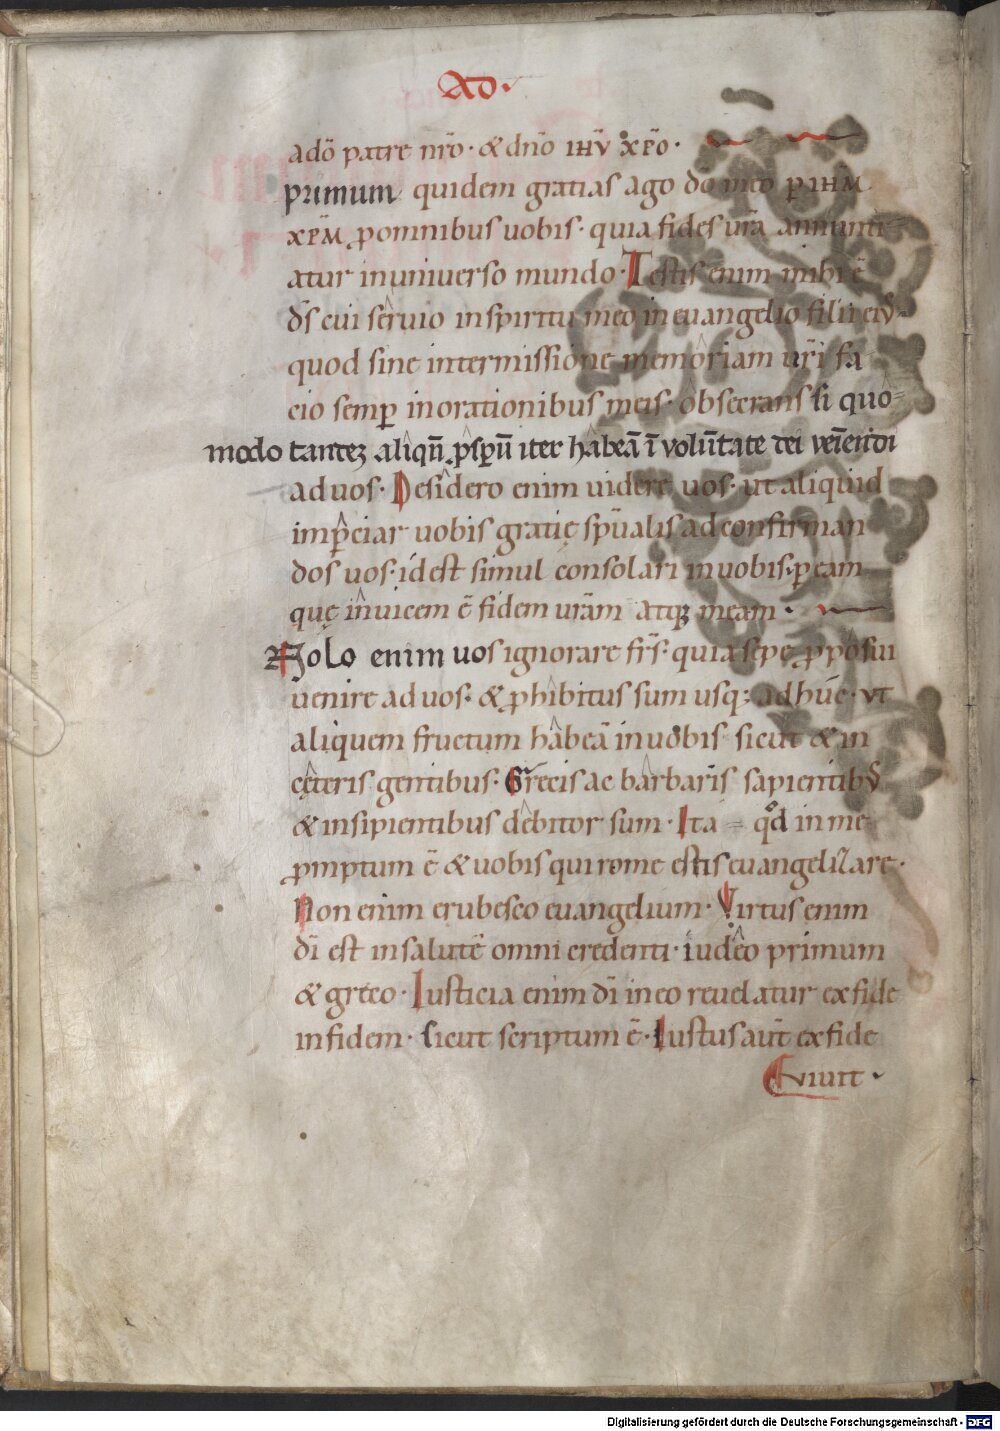 AD.
adō patre nr̄o· & dn̄o ihv̄ xp̄o·
primum quidem gratias ago dō meo p ihm̄
xp̄m ꝓomnibus uobis· quia fides ur̄a annunti
atur in uniuerso mundo· Testis enim mihi ē
ds̄ cui seruio inspiritu meo in euangelio filii eiꝰ·
quod sine intermissione memoriam ur̄i fa
cio semp̱ inorationibus meis· obsecrans si quo=
modo tandeʒ aliqn̄ ꝓspū iter habeā ī volūtate dei veīendi
ad uos· Desidero enim uidere uos· ut aliquid
imꝑciar uobis gratię spūalis ad confirman
dos uos· id est simul consolari in uobis· ꝑ eam
quę inuicem ē fidem urām atqꝫ meam·
Nolo enim uos ignorare frs̄· quia sepe ꝓposui
uenire ad uos· & ꝓhibitus sum usqꝫ adhuc· vt
aliquem fructum habeā in uobis sicut & in
cęteris gentibus· Grecis ac barbaris sapientibꝰ
& insipientibus debitor sum· Ita = qd in me
ꝓmptum ē & uobis qui rome estis euangelizare·
Non enim erubesco euangelium· Virtus enim
dī est in salutē omni credenti· iudeo primum
& greco· Iusticia enim dī in eo reuelatur ex fide
in fidem· sicut scriptum ē· Iustus aūt ex fide
viuit·
Digitalisierung gefördert durch die Deutsche Forschungsgemeinschaft - DFG